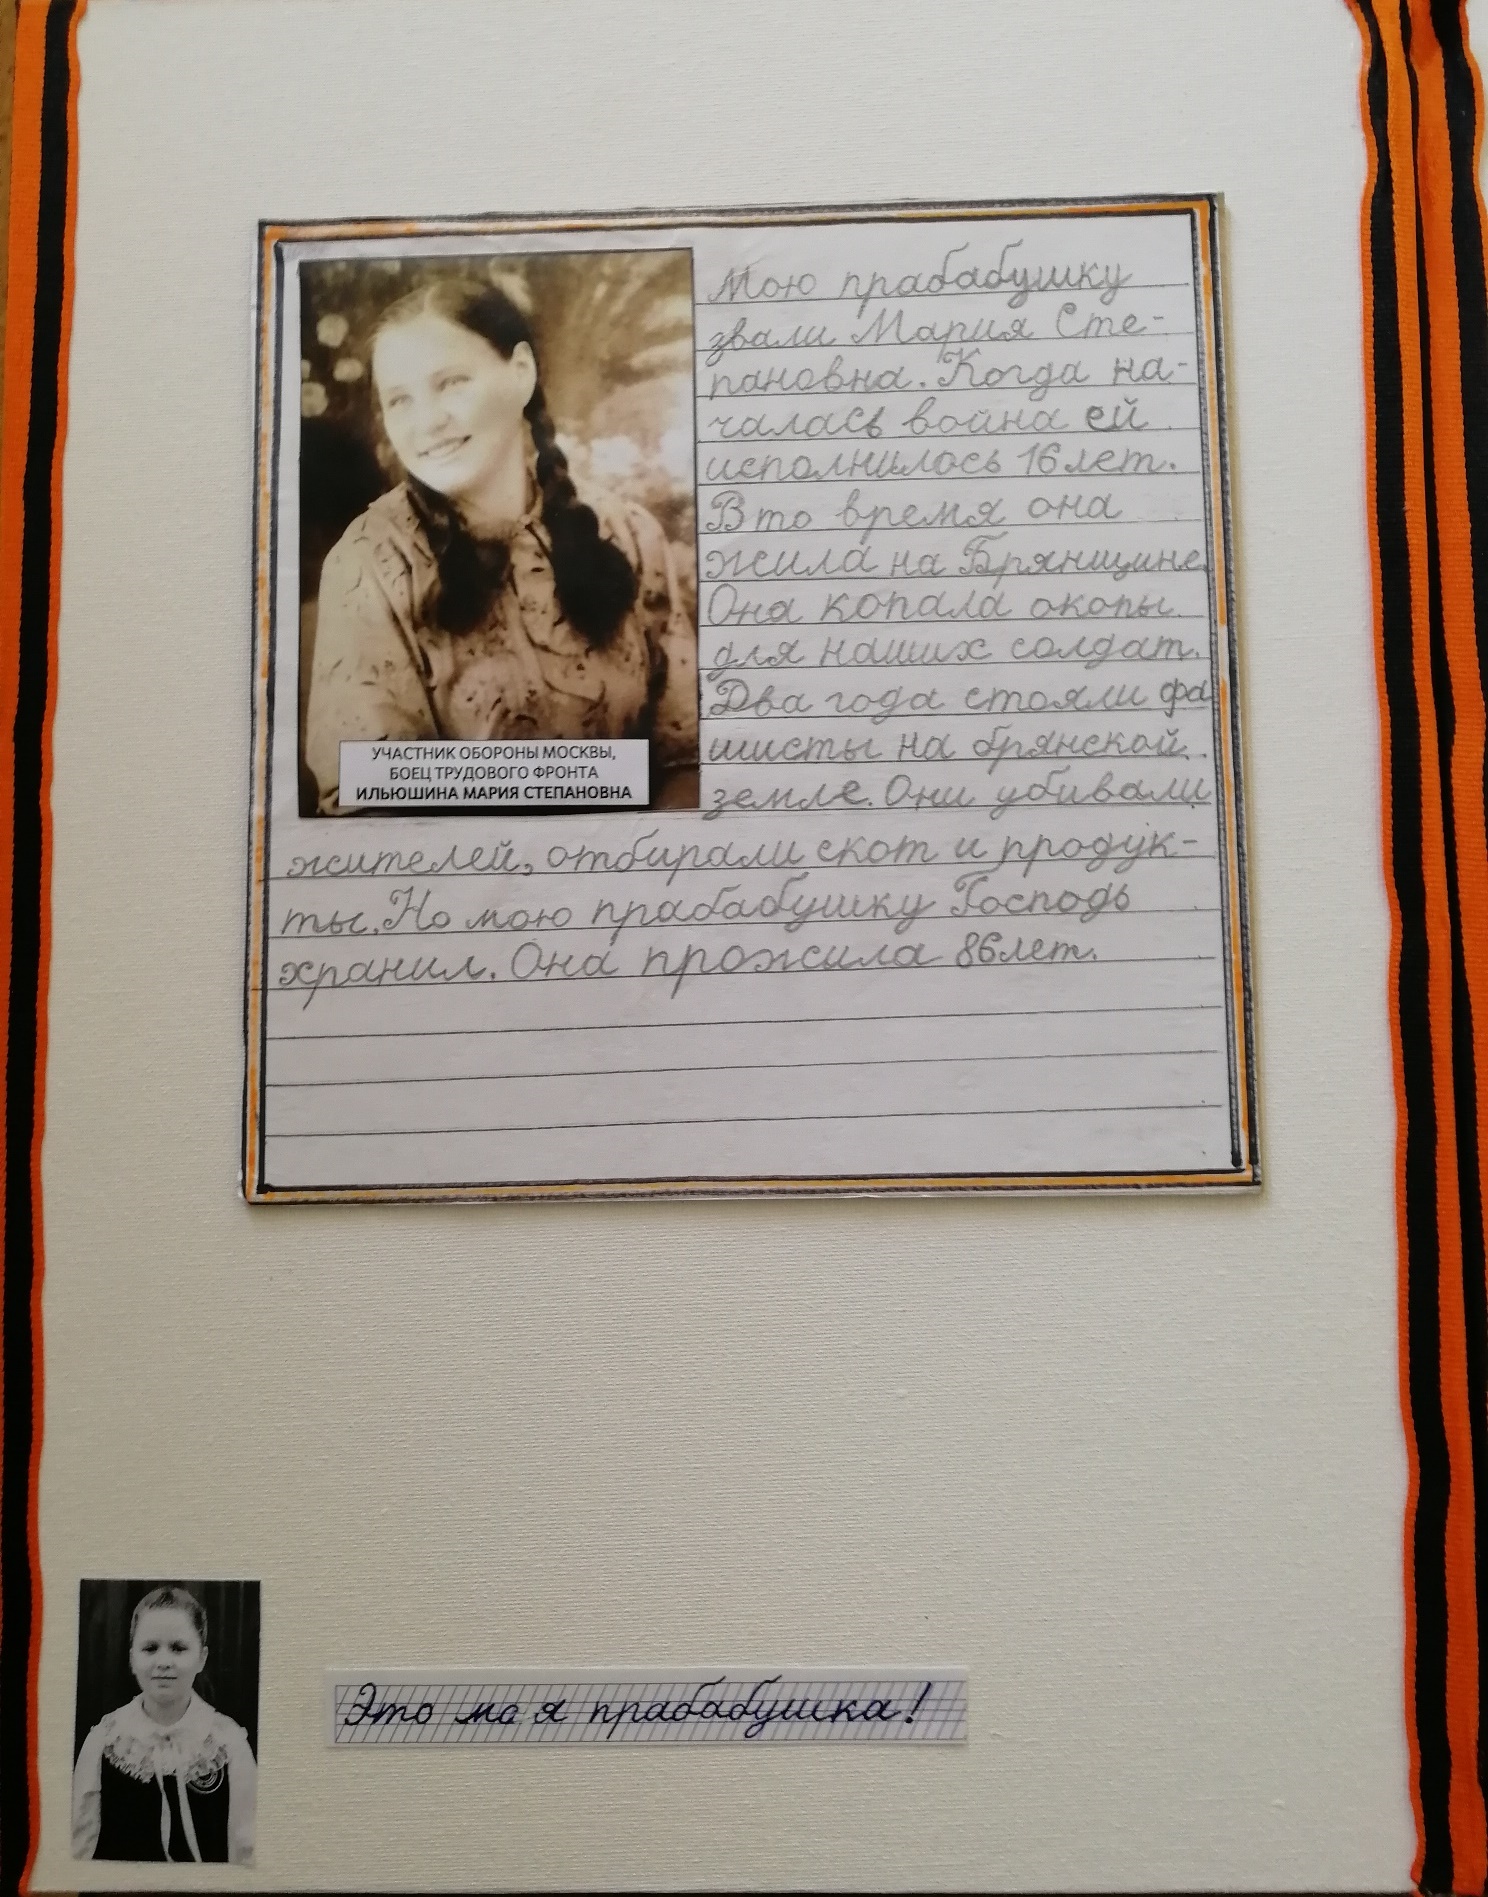 Мою прабабушку
звали Мария Сте-
пановна. Когда на-
чалась война ей
исполнилось 16 лет.
В то время она
жила на Брянщине
Она копала окопы
для наших солдат.
Два года стояли фа
шисты на брянской
земле. Они убивали
УЧАСТНИК ОБОРОНЫ МОСКВЫ,
БОЕЦ ТРУДОВОГО ФРОНТА
ИЛЬЮШИНА МАРИЯ СТЕПАНОВНА
жителей, отбирали скот и продук-
ты. Но мою прабабушку Господь
хранил. Она прожила 86 лет.
Это моя прабабушка!